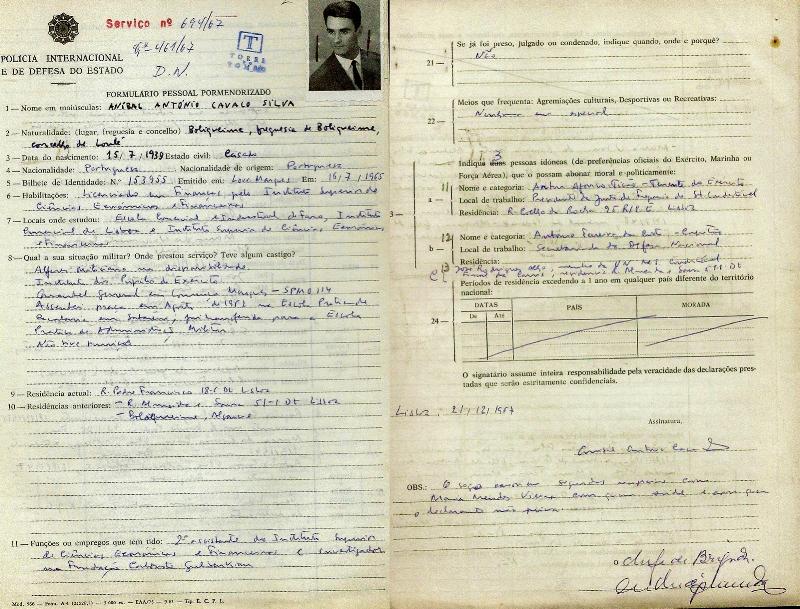 Serviço nº 694/67
461/67
D.N.
POLICIA INTERNACIONAL
E DE DEFESA DO ESTADO
T
TORRE
TOMBO
FORMULARIO PESSOAL PORMENORIZADO
1 — Nome em maiúsculas: ANÍBAL ANTÓNIO CAVACO SILVA
2 — Naturalidade: (lugar, freguesia e concelho) Boliqueime, freguesia de Boliqueime,
concelho de Loulé
3 — Data do nascimento: 15/7/1939 Estado civil: Casado
4 — Nacionalidade: Portuguesa Nacionalidade de origem: Portuguesa
5 — Bilhete de Identidade: N.º 153955 Emitido em: Lour. Marques Em: 16/7/1965
6 — Habilitações: Licenciado em Finanças pelo Instituto Superior de
Ciências Económicas e Financeiras
7 — Locais onde estudou: Escola Comercial e Industrial de Faro, Instituto
Comercial de Lisboa e Instituto Superior de Ciências Económicas
e Financeiras
8 — Qual a sua situação militar? Onde prestou serviço? Teve algum castigo?
Alferes miliciano na disponibilidade
Instituto dos Pupilos do Exército
Comando General em Lourenço Marques — SPM 0114
Assentou praça em Agosto de 1963 na Escola Prática de
Cavalaria em Santarém, foi transferido para a Escola
Prática de Administração Militar
Não tive punições
9 — Residência actual: R. Padre Francisco 18-6º Dt Lisboa
10 — Residências anteriores: — R. Almeida e Sousa 51-1 Dt Lisboa
— Boliqueime, Algarve
11 — Funções ou empregos que tem tido: 2º assistente do Instituto Superior
de Ciências Económicas e Financeiras e investigador
na Fundação Calouste Gulbenkian
Mod. 566
Tip. E. C. P. L.
Se já foi preso, julgado ou condenado, indique quando, onde e porquê?
21 — Não
Meios que frequenta: Agremiações culturais, Desportivas ou Recreativas:
22 — Nenhum em especial
3
Indique duas pessoas idóneas (de preferências oficiais do Exército, Marinha ou
Força Aérea), que o possam abonar moral e politicamente:
Nome e categoria: Afonso Tenente do Exército
a — Local de trabalho: Presidente da Junta de Freguesia de St. Condestável
Residência: R. Coelho da Rocha 95 R/C E Lisboa
3 —
Nome e categoria: António Exército
b — Local de trabalho: Secretariado da Defesa Nacional
Residência:
c
Períodos de residência excedendo a 1 ano em qualquer país diferente do território
nacional:
24 —
DATAS
De
Até
PAÍS
MORADA
O signatário assume inteira responsabilidade pela veracidade das declarações pres-
tadas que serão estritamente confidenciais.
Lisboa, 21/12/1967
Assinatura,
OBS.: O sogro casou em segundas núpcias com
Maria Mendes Vieira com quem reside e com quem
o declarante não priva.
O chefe de Brigada